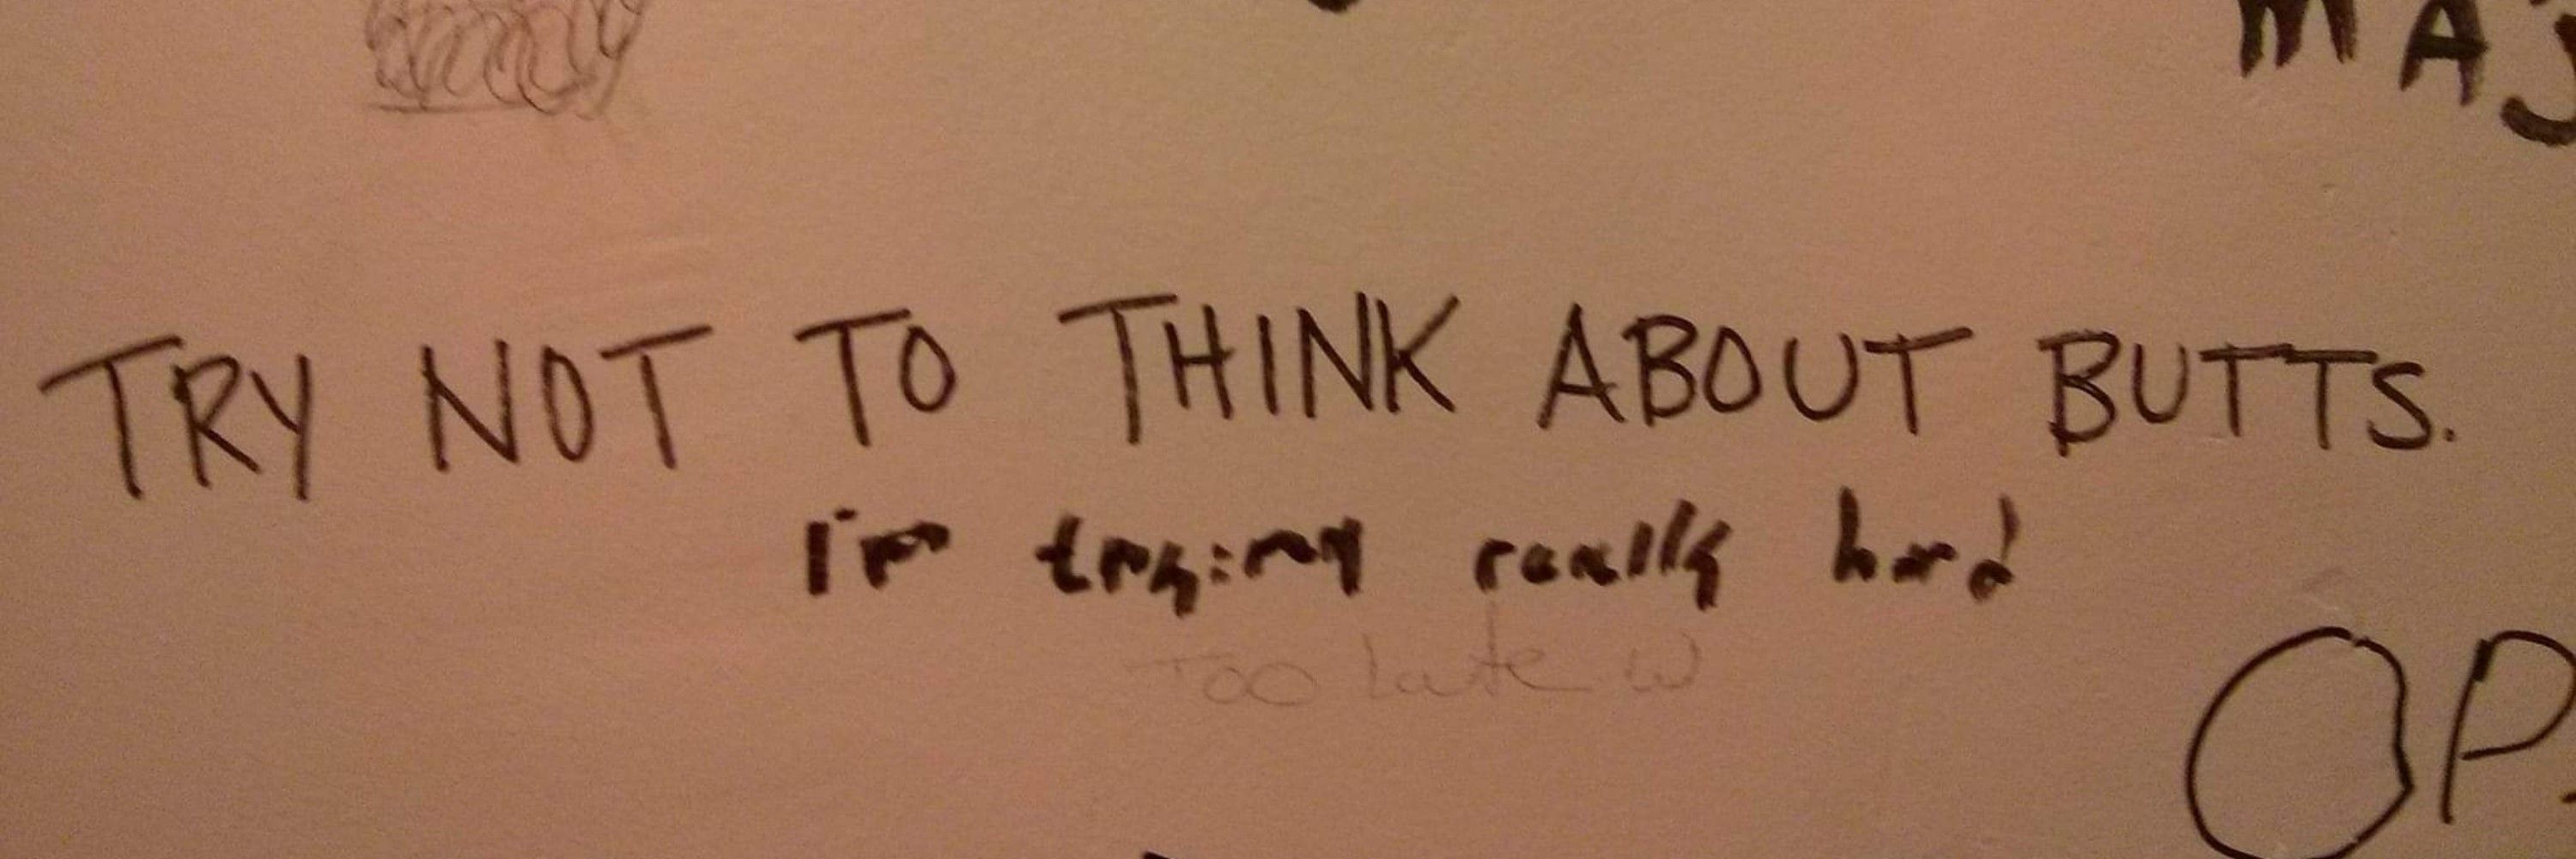 MAJ
TRY NOT TO THINK ABOUT BUTTS.
i'm trying really hard
Too Late W
OP